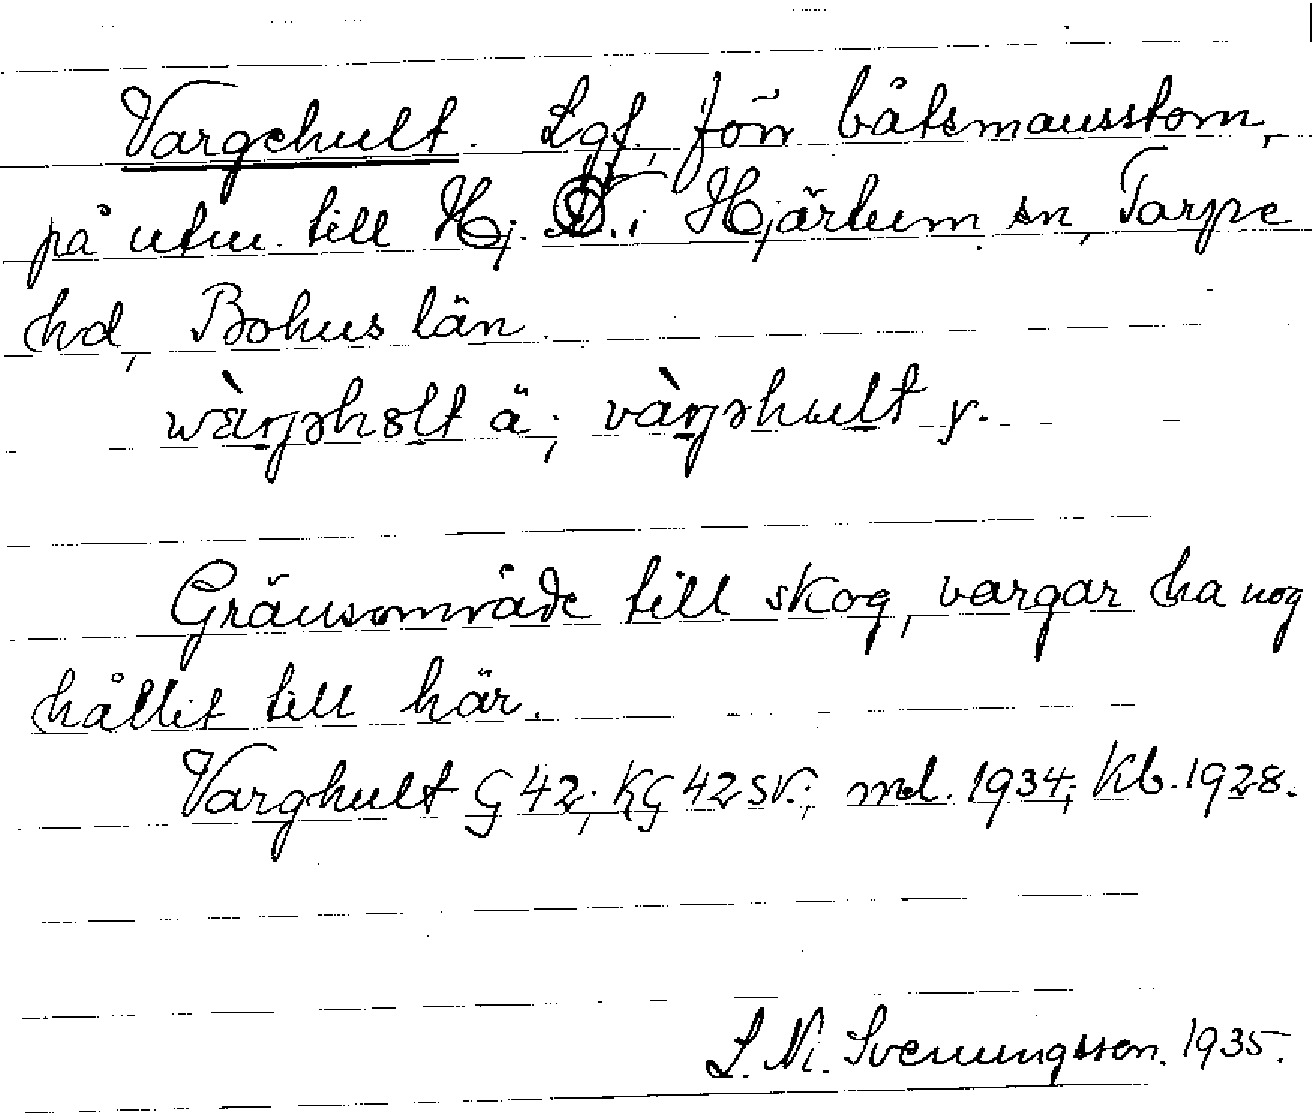 Vargehult. Lgf, förr båtsmanstorp,
på utm. till Hj. i Hjärtum sn, Torpe
hd, Bohus län.
wàrgəhȣlt ä; vàrgəhult y.
Gränsområde till skog, vargar ha nog
hållit till här.
Varghult G 42; KG 42 SV.; md. 1934; Kb. 1928.
S. N. Svenungsson. 1935.